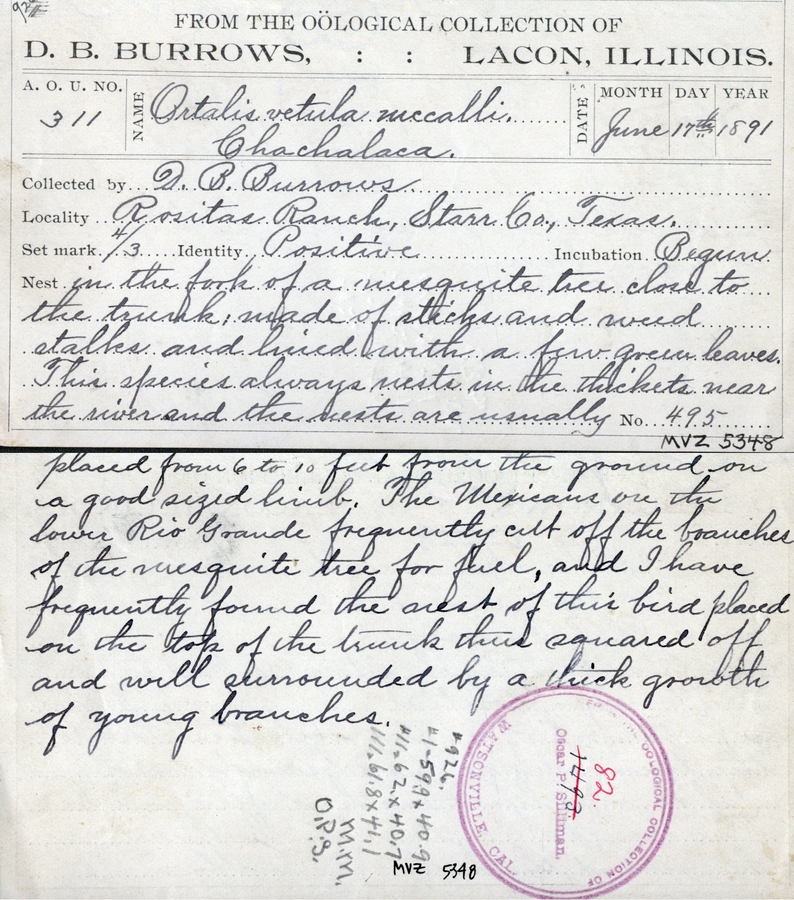 FROM THE OÖLOGICAL COLLECTION OF
D. B. BURROWS, : : LACON, ILLINOIS.
A. O. U. NO. 311
NAME Ortalis vetula mccalli.
Chachalaca.
DATE MONTH DAY YEAR
June 17th 1891
Collected by D. B. Burrows.
Locality Rositas Ranch, Starr Co., Texas.
Set mark 4/3 Identity Positive Incubation Begun
Nest in the fork of a mesquite tree close to
the trunk; made of sticks and weed
stalks and lined with a few green leaves.
This species always nests in the thickets near
the river and the nests are usually No. 495
MVZ 5348
placed from 6 to 10 feet from the ground on
a good sized limb. The Mexicans on the
lower Rio Grande frequently cut off the branches
of the mesquite tree for fuel, and I have
frequently found the nest of this bird placed
on the top of the trunk thus squared off
and well surrounded by a thick growth
of young branches.
#926.
#1-59.9 x 40.9
#11-62 x 40.7
111-61.8 x 41.1
m.m.
O.P.S.
MVZ 5348
OOLOGICAL COLLECTION OF
Oscar P. Silliman.
WATSONVILLE, CAL.
82.